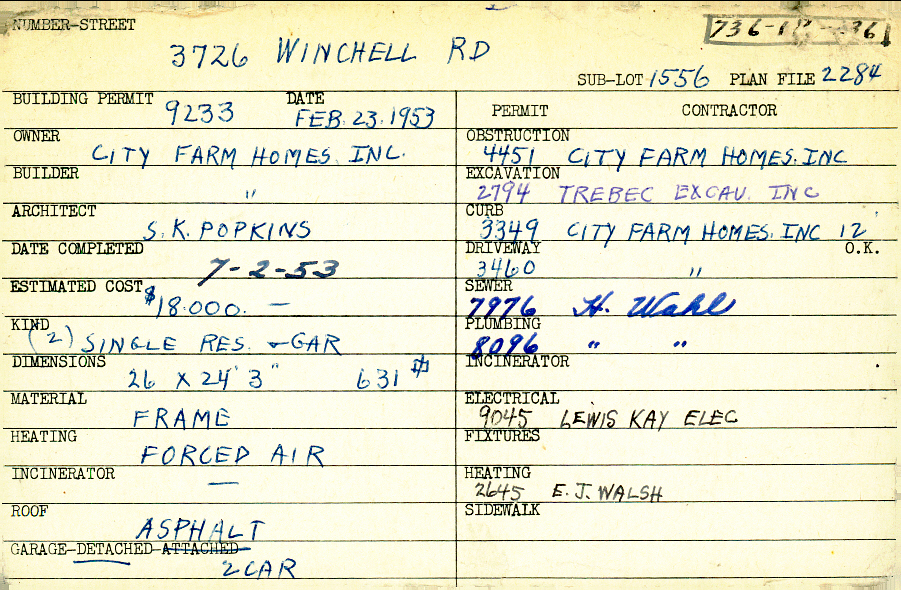 NUMBER-STREET
3726 WINCHELL RD
SUB-LOT 1556 PLAN FILE 2284
BUILDING PERMIT 9233 DATE FEB. 23. 1953
OWNER
CITY FARM HOMES. INC.
BUILDER
"
ARCHITECT
S. K. POPKINS
DATE COMPLETED
7-2-53
ESTIMATED COST
$18.000. —
KIND
(2) SINGLE RES. & GAR
DIMENSIONS
26 X 24' 3" 631 #
MATERIAL
FRAME
HEATING
FORCED AIR
INCINERATOR
—
ROOF
ASPHALT
GARAGE-DETACHED-ATTACHED
2 CAR
PERMIT CONTRACTOR
OBSTRUCTION
4451 CITY FARM HOMES. INC
EXCAVATION
2794 TREBEC EXCAV. INC
CURB
3349 CITY FARM HOMES. INC 12'
DRIVEWAY O.K.
3460 "
SEWER
7976 H. Wahl
PLUMBING
8096 " "
INCINERATOR
ELECTRICAL
9045 LEWIS KAY ELEC
FIXTURES
HEATING
2645 E. J. WALSH
SIDEWALK